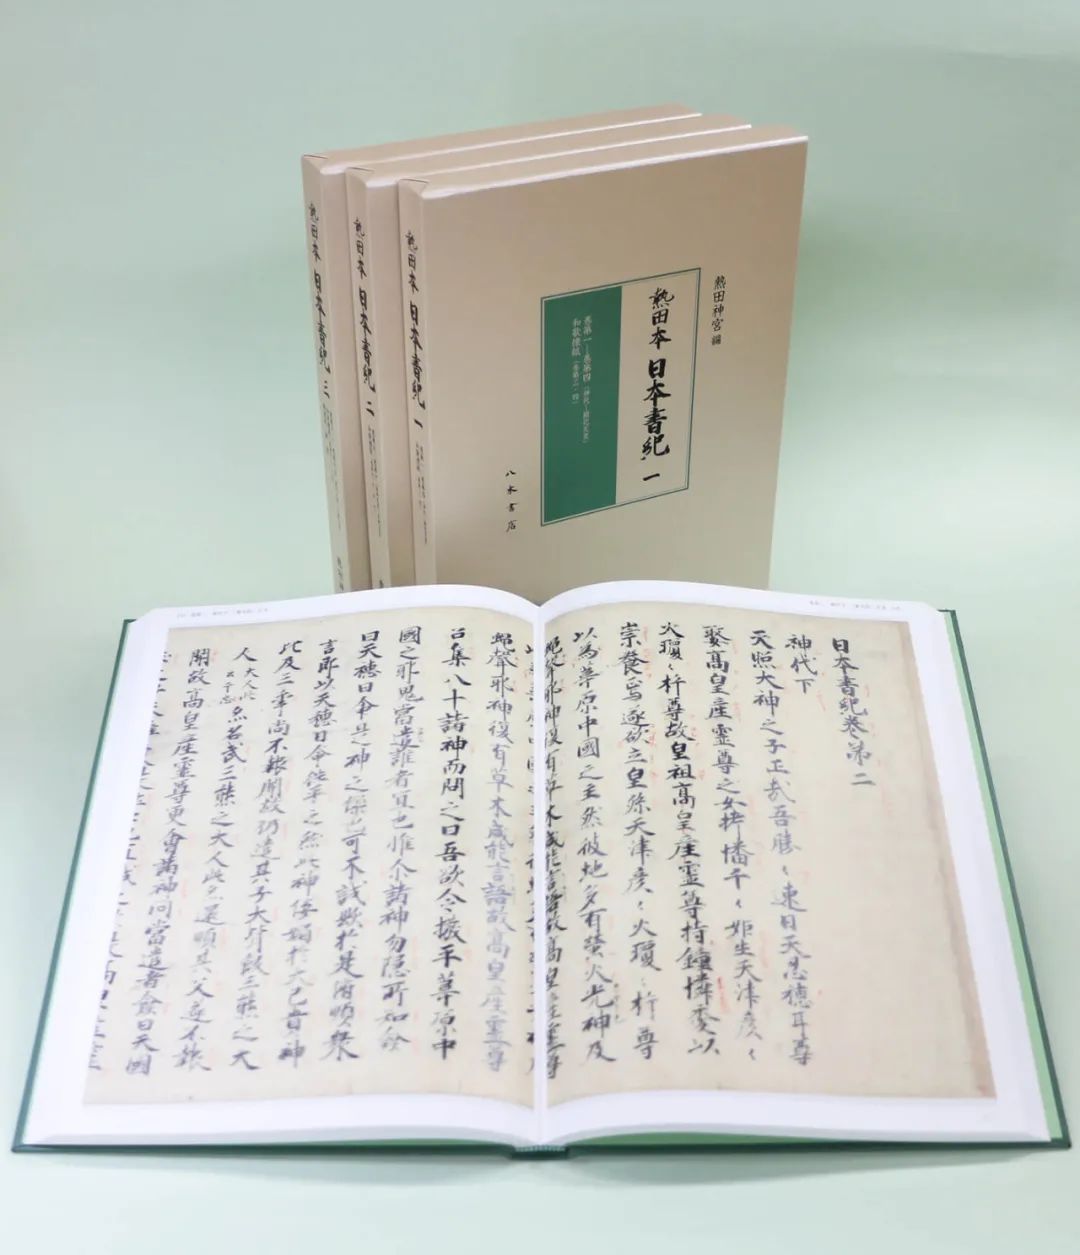 熱田本 日本書紀 三
熱田本 日本書紀 二
熱田本 日本書紀 一
熱田神宮 編
熱田本 日本書紀 一
巻第一―巻第四(神代~開化天皇)
和歌懐紙(巻第三・四)
八木書店
日本書紀巻第二
神代下
天照大神之子正哉吾勝〻速日天忍穂耳尊
娶高皇産靈尊之女栲幡千〻姫生天津彦〻
火瓊〻杵尊故皇祖高皇産靈尊特鍾憐愛以
崇養焉遂欲立皇孫天津彦〻火瓊〻杵尊
以為葦原中國之主然彼地多有螢火光神及
蝿聲邪神復有草木咸能言語故高皇産靈尊
蝿聲邪神復有草木咸能言語故高皇産靈尊
召集八十諸神而問之曰吾欲令撥平葦原中
國之邪鬼當遣誰者宜也惟尒諸神勿隠所知僉
曰天穂日命是神之傑也可不試歟於是俯順衆
言即以天穂日命往平之然此神佞媚於大己貴神
比及三年尚不報聞故仍遣其子大背飯三熊之大
人大人此云于志亦名武三熊之大人此亦還順其父遂不報
聞故高皇産靈尊更會諸神問當遣者僉曰天國